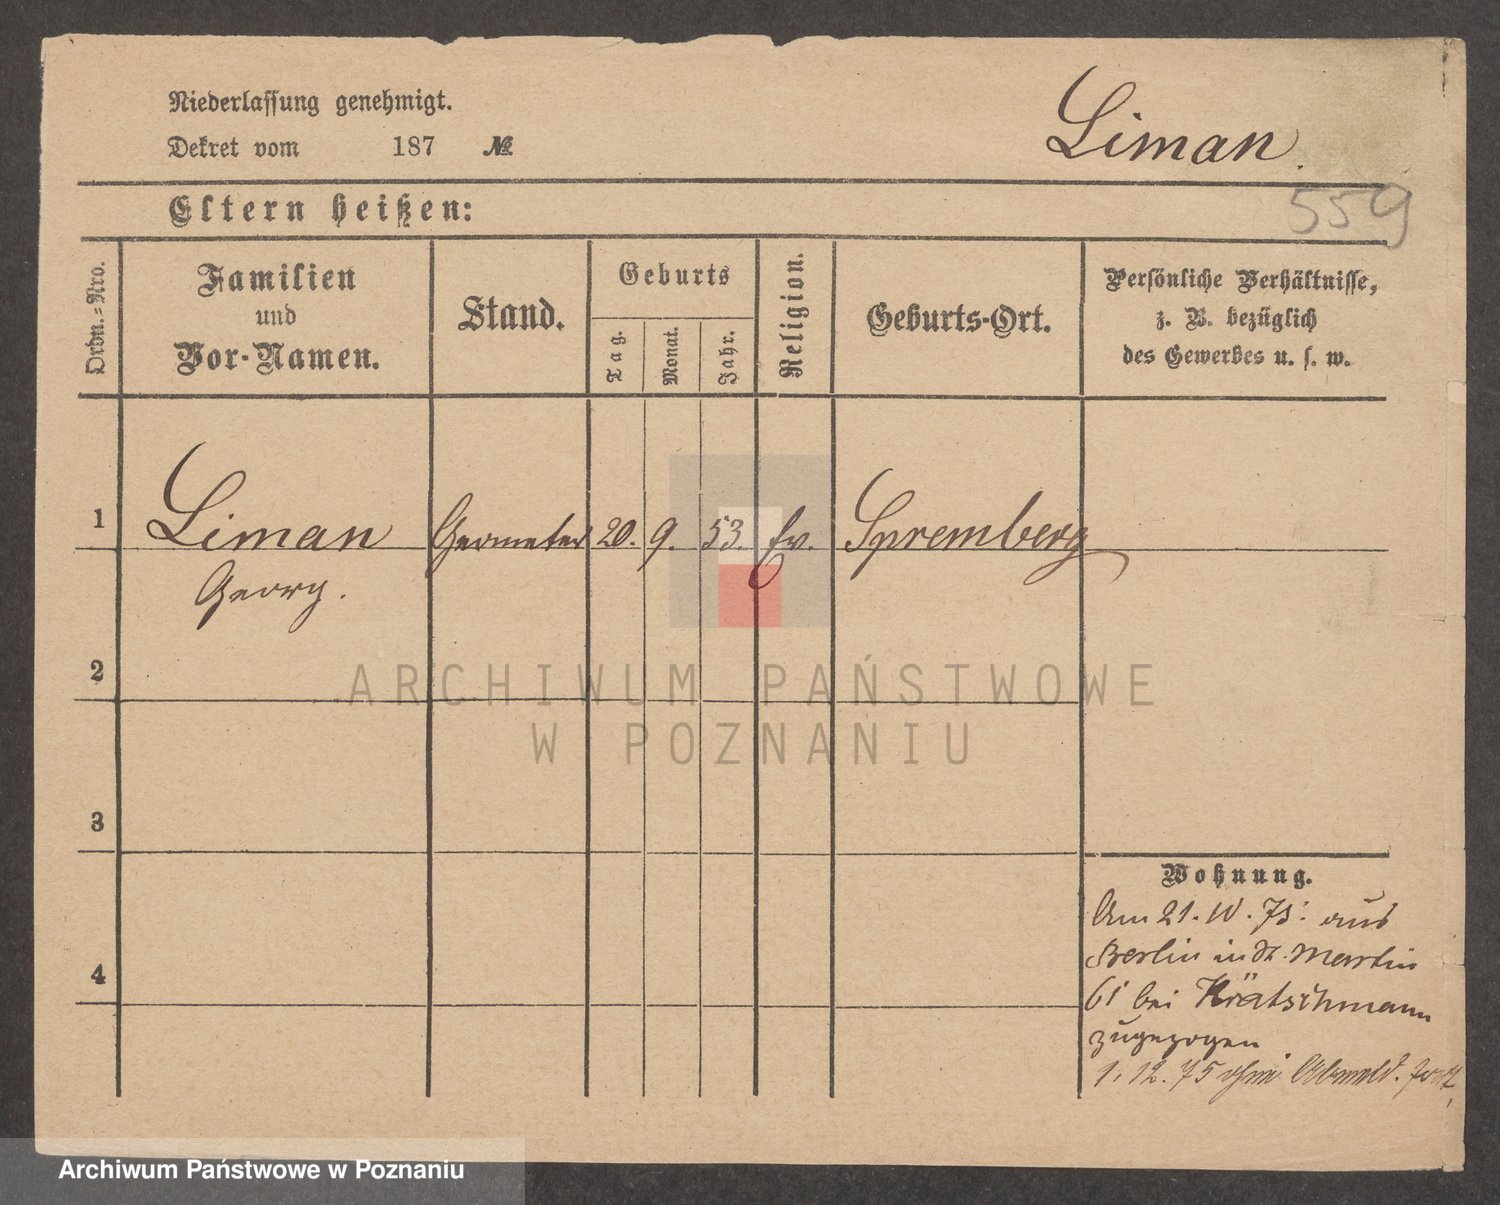 Niederlassung genehmigt.
Dekret vom 187 №
Liman.
559
Eltern heißen:
Ordn.-Nro.
Familien
und
Vor-Namen.
Stand.
Geburts
Tag.
Monat.
Jahr.
Religion.
Geburts-Ort.
Persönliche Verhältnisse,
z. B. bezüglich
des Gewerbes u. s. w.
1 Liman Geometer 20. 9. 53. Ev. Spremberg
Georg.
2
3
4
Wohnung.
Am 21. IV. 75. aus
Berlin in St. Martin
61 bei Krätschmann
zugezogen
1. 12. 75 ohne Abmeld. fort
ARCHIWUM PAŃSTWOWE
W POZNANIU
Archiwum Państwowe w Poznaniu